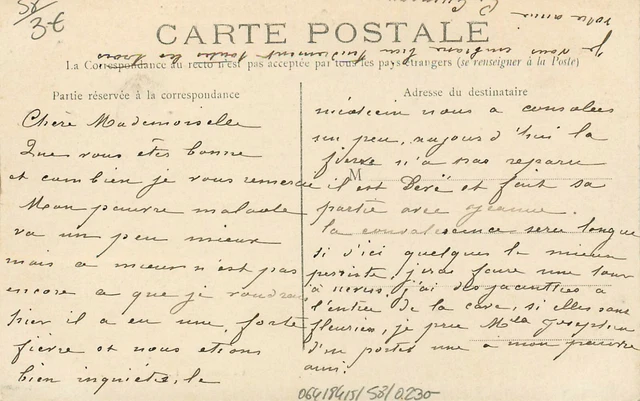 58/
3€
CARTE POSTALE
La Correspondance au recto n'est pas acceptée par tous les pays étrangers (se renseigner à la Poste)
Partie réservée à la correspondance
Chère Mademoiselle
Que vous êtes bonne
et combien je vous remercie
Mon pauvre malade
va un peu mieux
mais ce mieux n'est pas
encore ce que je voudrais
hier il a eu une forte
fièvre et nous étions
bien inquiète, le
Adresse du destinataire
M
médecin nous a consolées
un peu, aujourd'hui la
fièvre n'a pas reparu
il est levé et fait sa
partie avec Jeanne.
la convalescence sera longue
si d'ici quelques le mieux
persiste, j'irai faire une tour
à nervis, j'ai des jacinthes à
l'entrée de la cave, si elles sont
fleuries, je prie Mlle Joséphine
d'en porter une à mon pauvre
ami.
Je vous embrasse bien tendrement toutes les trois
votre amie
06418415/58/0.230